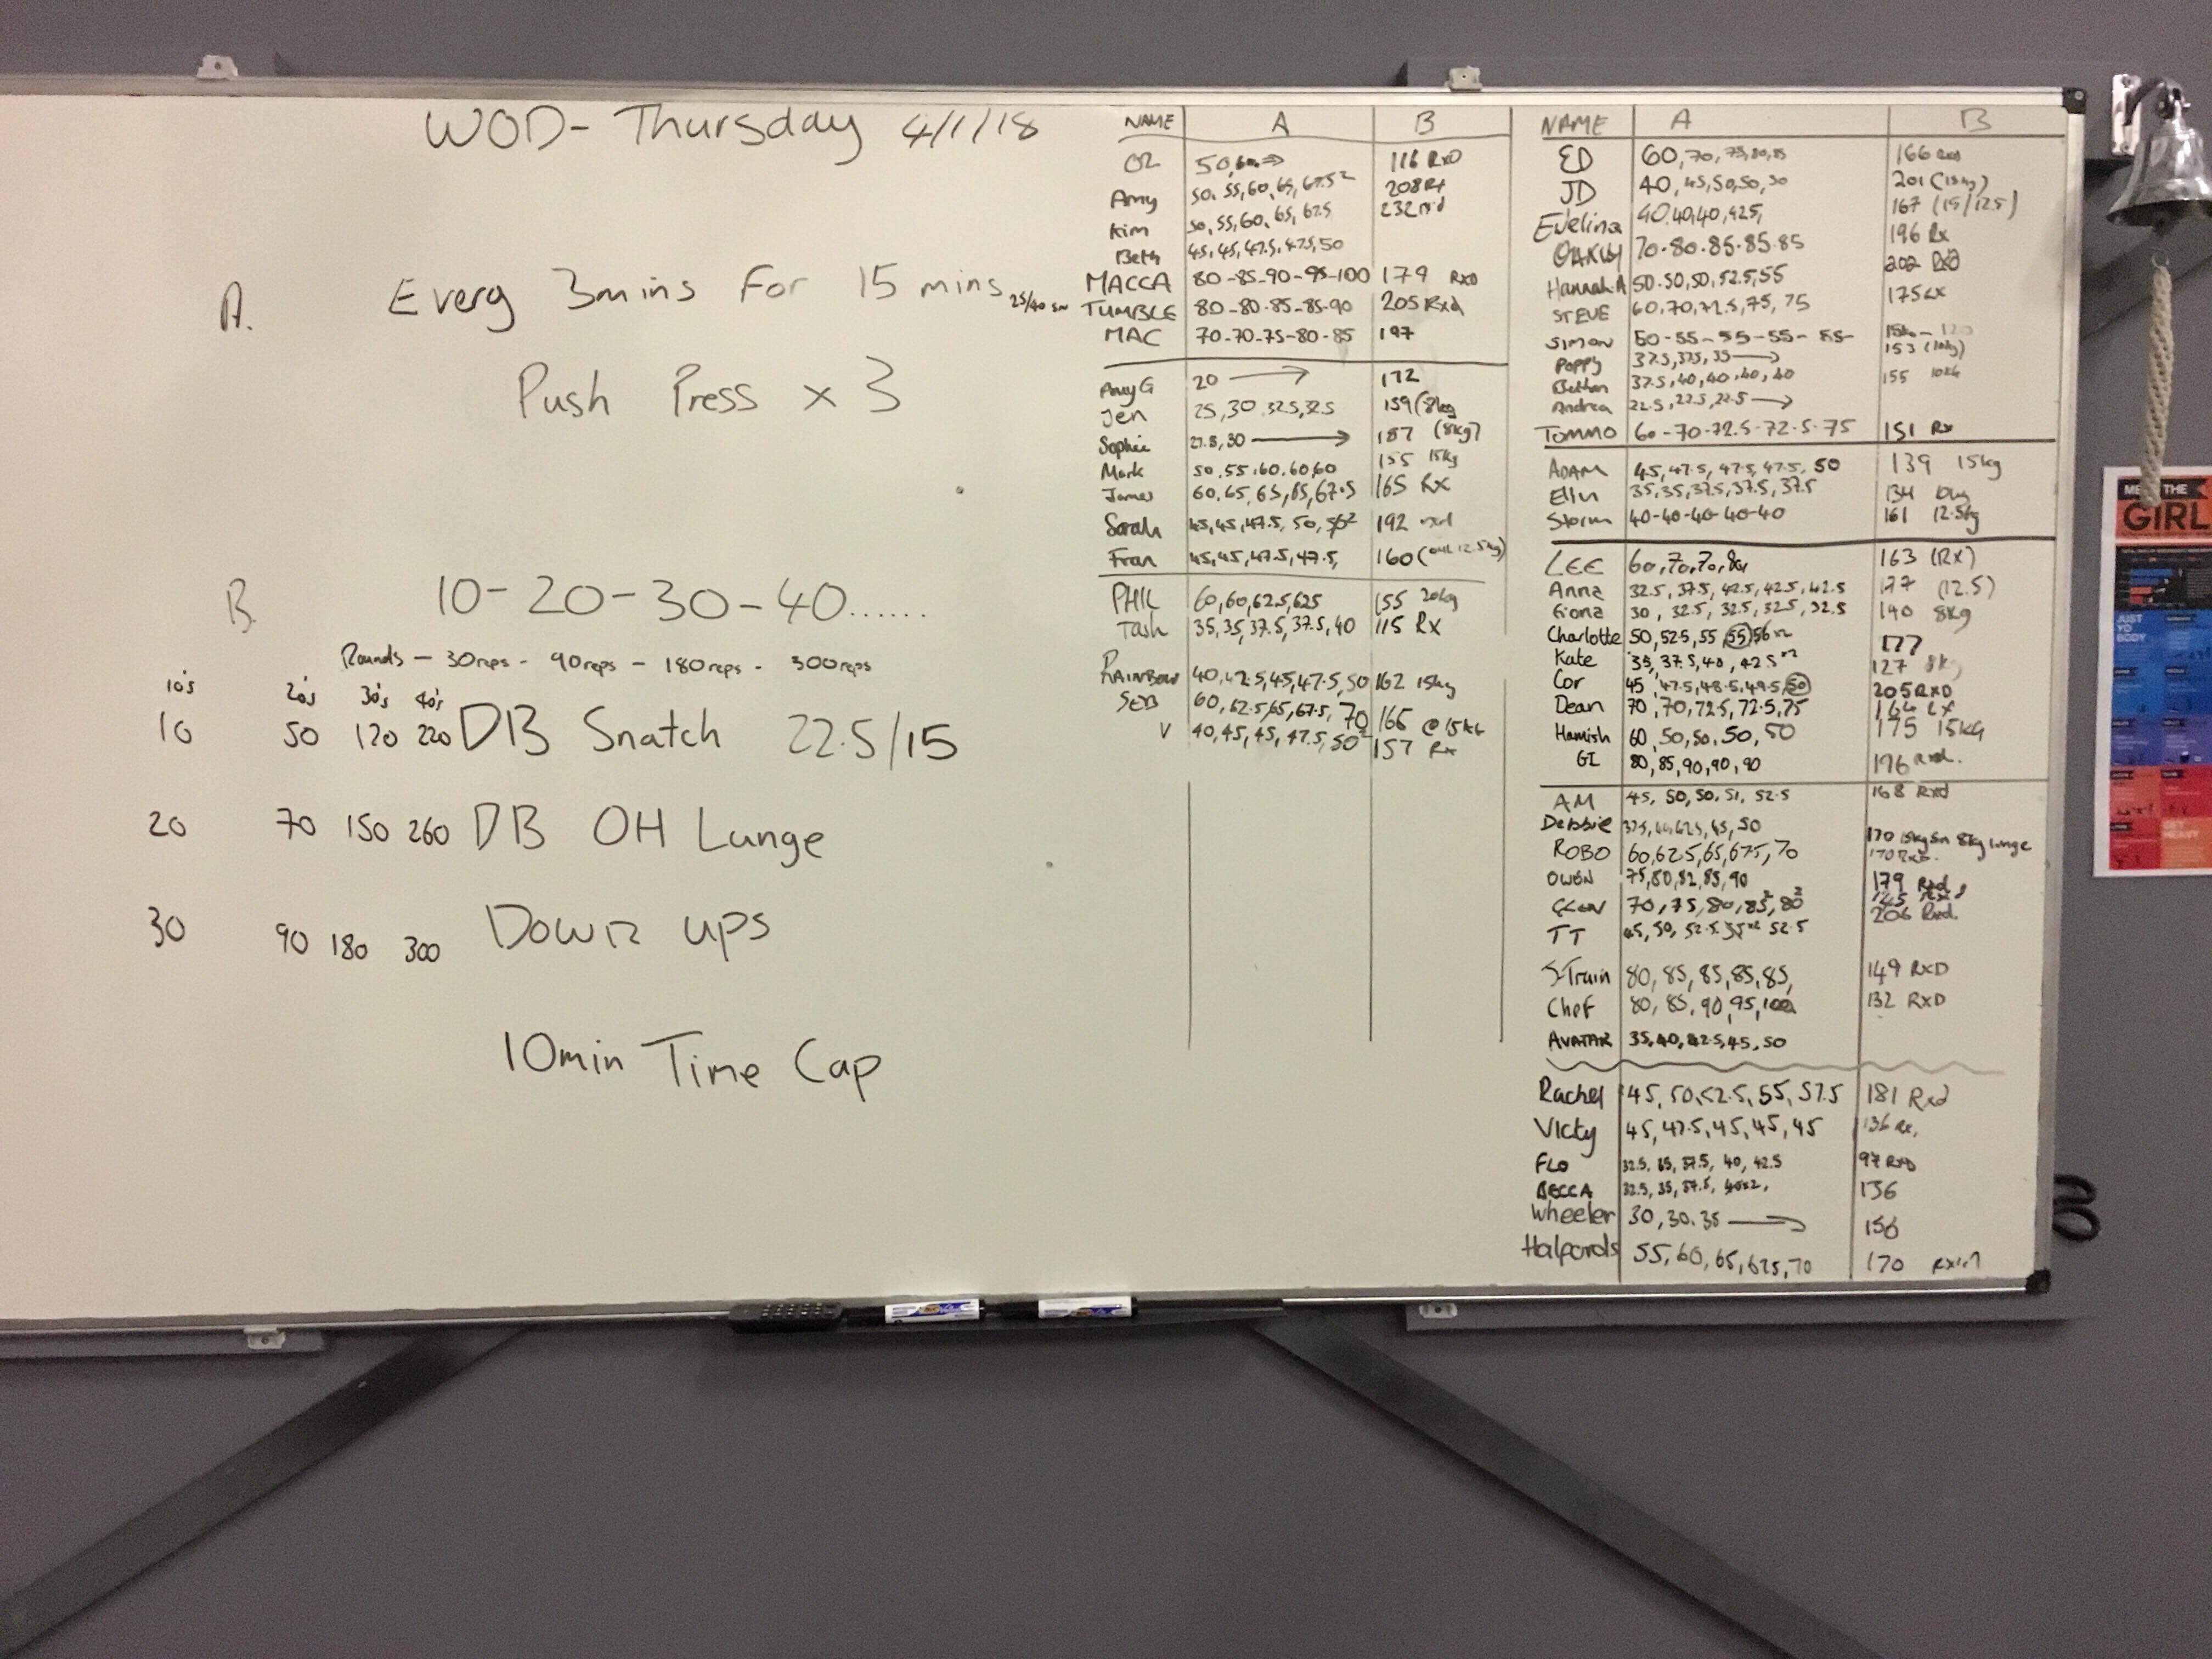 WOD- Thursday 4/1/18
A. Every 3mins For 15 mins
Push Press x 3
B. 10-20-30-40......
Rounds - 30reps - 90reps - 180reps - 300reps
10's 20's 30's 40's
10 50 120 220 DB Snatch 22.5/15
20 70 150 260 DB OH Lunge
30 90 180 300 Down ups
10min Time Cap
NAME A B
116 RxD
Amy 50, 55, 60, 65, 67.5² 208
Kim 50, 55, 60, 65, 62.5 232
Beth 45, 45, 47.5, 47.5, 50
MACCA 80-85-90-95-100 179 RXD
TUMBLE 80-80-85-85-90 205 Rxd
MAC 70-70-75-80-85 197
Amy G 20 → 172
Jen 25, 30, 32.5, 32.5 159 (8kg
Sophie 27.5, 30 → 187 (8kg)
Mark 50, 55, 60, 60, 60 155 15kg
James 60, 65, 65, 65, 67.5 165 Rx
Sarah 45, 45, 47.5, 50, 192
Fran 45, 45, 47.5, 47.5, 160
PHIL 60, 60, 62.5, 62.5 155 20kg
Tash 35, 35, 37.5, 37.5, 40 115 Rx
RAINBOW 40, 42.5, 45, 47.5, 50 162 15kg
SEB 60, 62.5, 65, 67.5, 70 165 @15kg
V 40, 45, 45, 47.5, 50² 157 Rx
NAME A B
ED 60, 70, 75, 80, 85 166
JD 40, 45, 50, 50, 50 201 (15kg)
Evelina 40, 40, 40, 42.5, 167 (15/12.5)
70-80-85-85-85 196 Rx
Hannah.A 50.50, 50, 52.5, 55 202 RXD
STEVE 60, 70, 72.5, 75, 75 175
SIMON 50-55-55-55-55-
Poppy 37.5, 37.5, 35 → 153 (10kg)
37.5, 40, 40, 40, 40 155 10kg
Andrea 22.5, 22.5, 22.5 →
TOMMO 60-70-72.5-72.5-75 151 Rx
ADAM 45, 47.5, 47.5, 47.5, 50 139 15kg
35, 35, 37.5, 37.5, 37.5 134
Storm 40-40-40-40-40 161 12.5kg
LEE 60, 70, 70, 163 (Rx)
Anna 32.5, 37.5, 42.5, 42.5, 42.5 177 (12.5)
Fiona 30, 32.5, 32.5, 32.5, 32.5 140 8kg
Charlotte 50, 52.5, 55 55 56 177
Kate 35, 37.5, 40, 42.5 127
Cor 45, 47.5, 48.5, 49.5, 50 205 RXD
Dean 70, 70, 72.5, 72.5, 75 164
Hamish 60, 50, 50, 50, 50 175 15KG
GI 80, 85, 90, 90, 90 176 Rxd.
AM 45, 50, 50, 51, 52.5 168 Rxd
Debbie
170 15kg Sn 8kg lunge
ROBO 60, 62.5, 65, 67.5, 70
OWEN 75, 80, 82, 85, 90 179 Rxd
70, 75, 80, 85², 80²
206 Rxd.
TT 45, 50, 52.5, 52.5
S-Train 80, 85, 85, 85, 85, 149 RXD
Chef 80, 85, 90, 95, 100 132 RXD
AVATAR 35, 40, 42.5, 45, 50
Rachel 45, 50, 52.5, 55, 57.5 181 Rxd
Vicky 45, 47.5, 45, 45, 45 136
FLO 32.5, 35, 37.5, 40, 42.5 97 RXD
BECCA 32.5, 35, 37.5, 40x2, 136
Wheeler 30, 30, 35 → 156
Halfords 55, 60, 65, 62.5, 70 170
THE
GIRL
JUST
YO
BODY